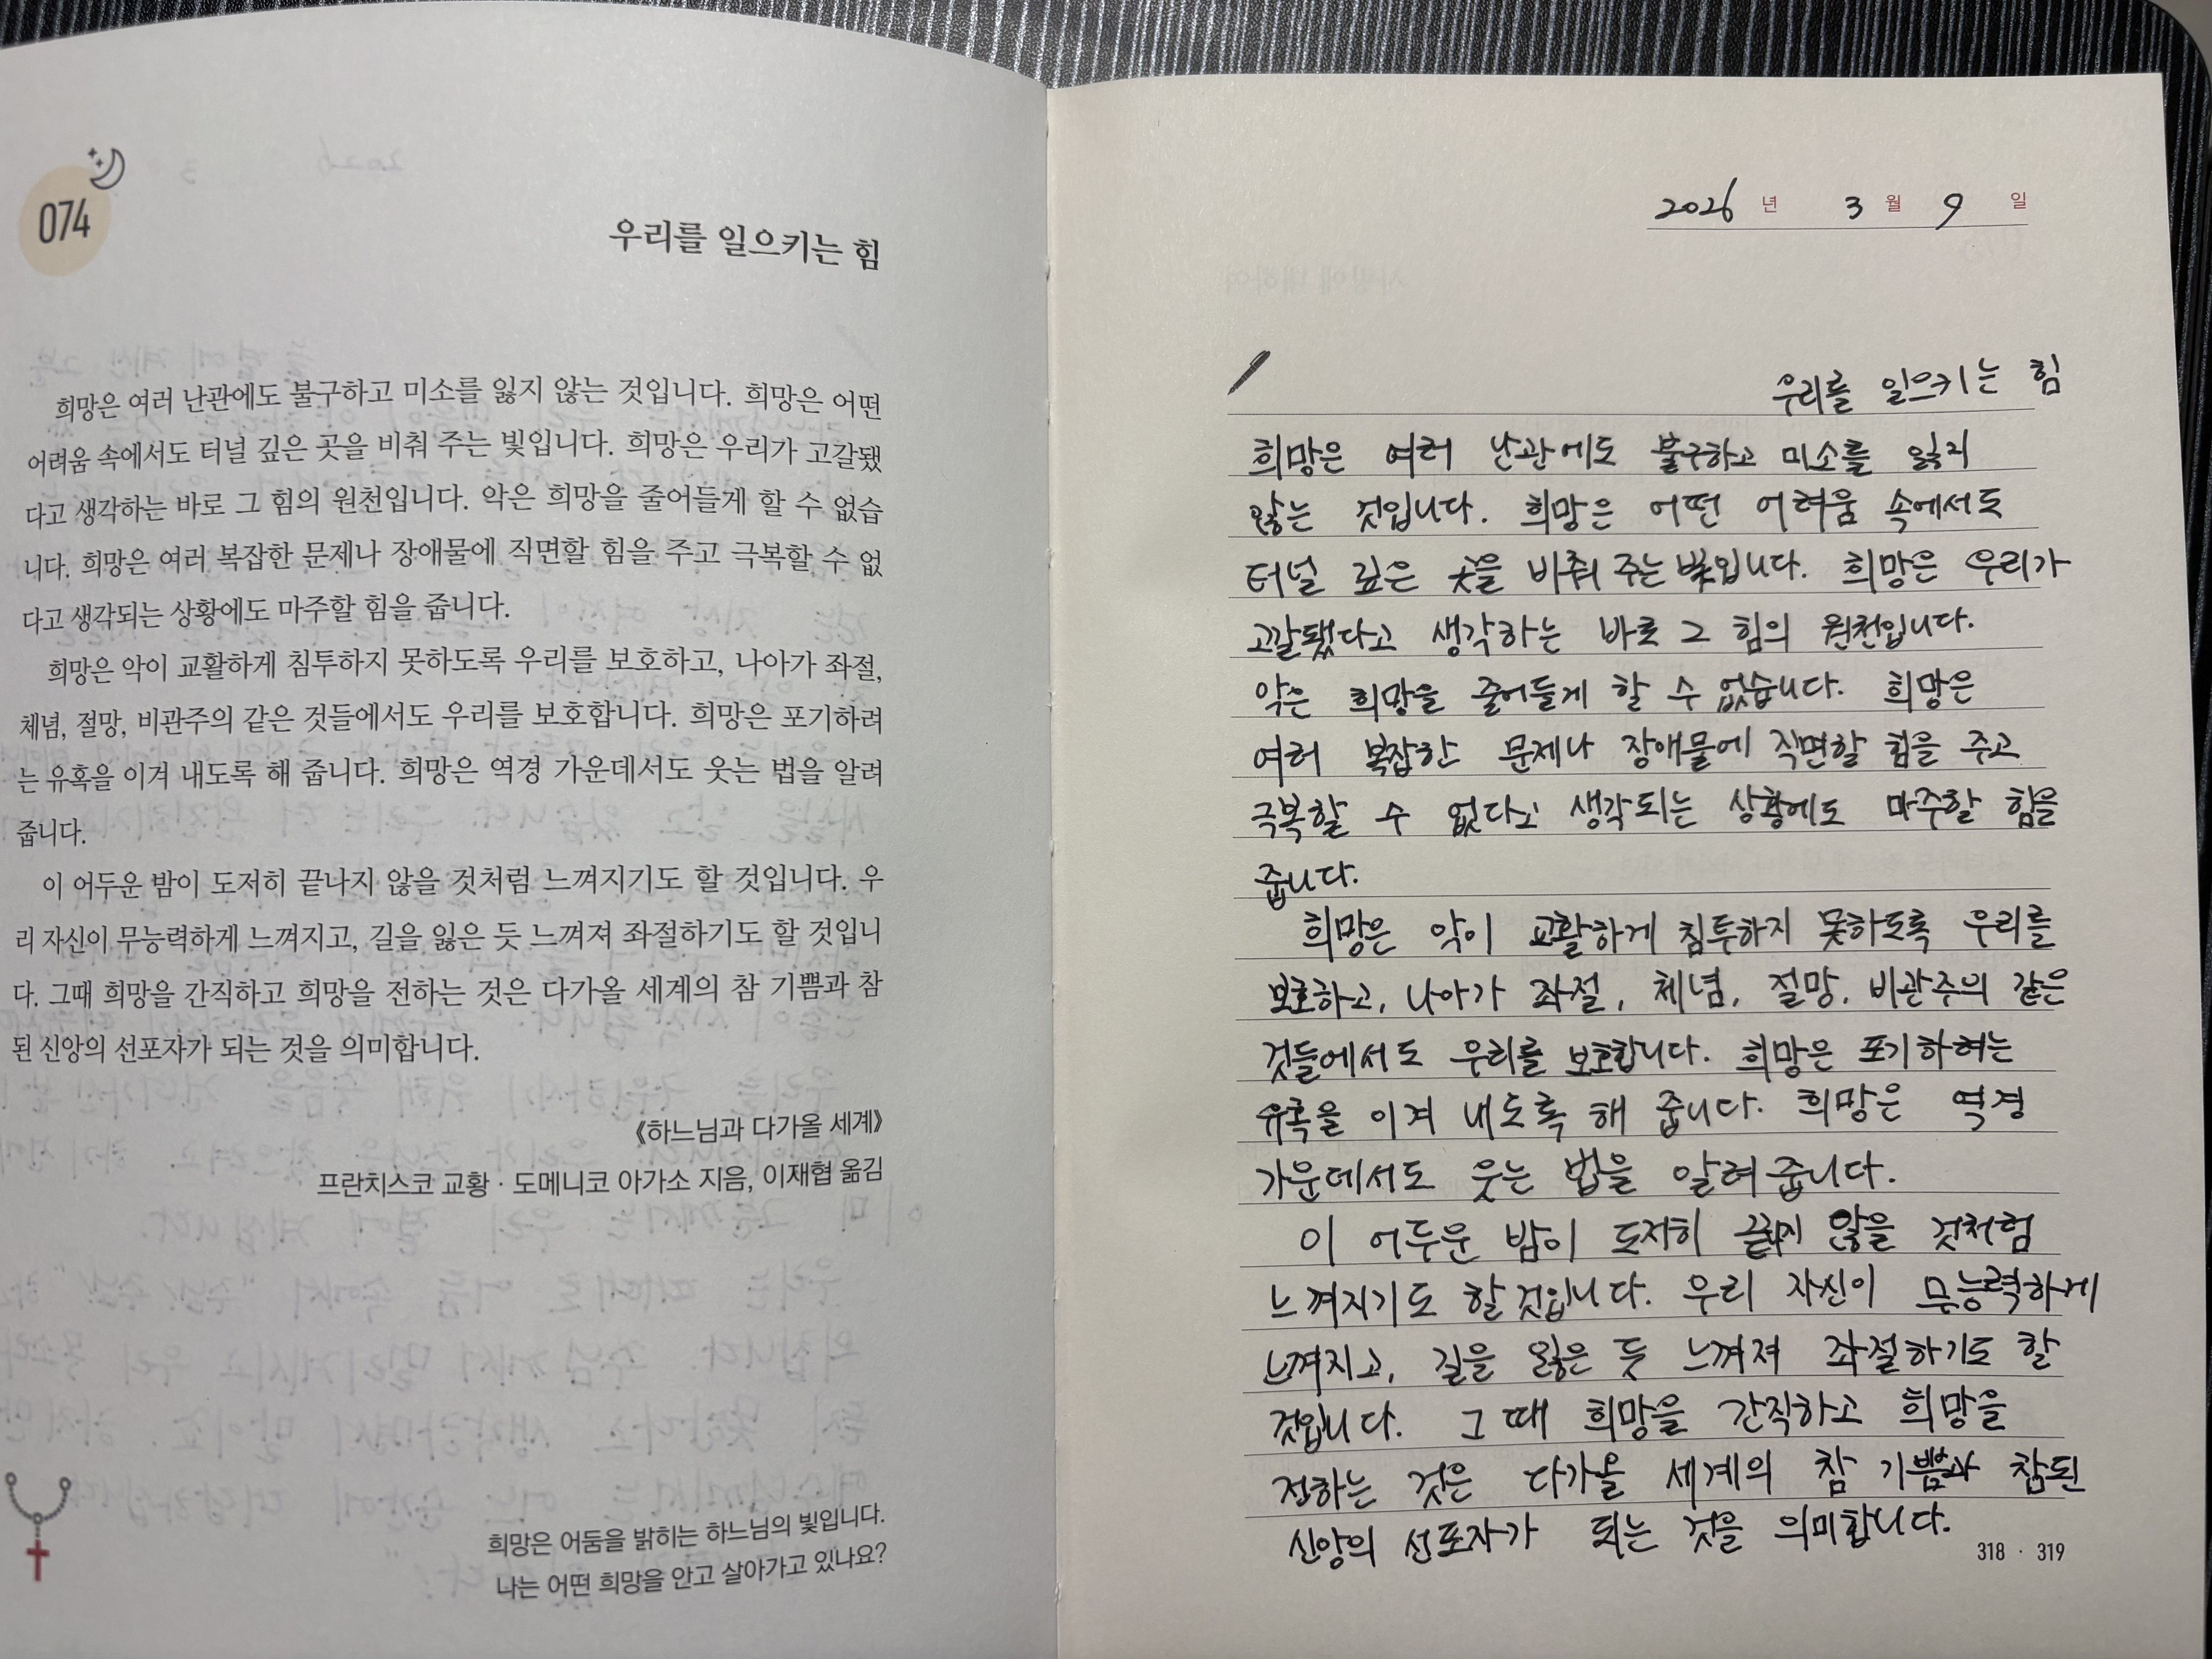 074
우리를 일으키는 힘
희망은 여러 난관에도 불구하고 미소를 잃지 않는 것입니다. 희망은 어떤
어려움 속에서도 터널 깊은 곳을 비춰 주는 빛입니다. 희망은 우리가 고갈됐
다고 생각하는 바로 그 힘의 원천입니다. 악은 희망을 줄어들게 할 수 없습
니다. 희망은 여러 복잡한 문제나 장애물에 직면할 힘을 주고 극복할 수 없
다고 생각되는 상황에도 마주할 힘을 줍니다.
희망은 악이 교활하게 침투하지 못하도록 우리를 보호하고, 나아가 좌절,
체념, 절망, 비관주의 같은 것들에서도 우리를 보호합니다. 희망은 포기하려
는 유혹을 이겨 내도록 해 줍니다. 희망은 역경 가운데서도 웃는 법을 알려
줍니다.
이 어두운 밤이 도저히 끝나지 않을 것처럼 느껴지기도 할 것입니다. 우
리 자신이 무능력하게 느껴지고, 길을 잃은 듯 느껴져 좌절하기도 할 것입니
다. 그때 희망을 간직하고 희망을 전하는 것은 다가올 세계의 참 기쁨과 참
된 신앙의 선포자가 되는 것을 의미합니다.
《하느님과 다가올 세계》
프란치스코 교황 · 도메니코 아가소 지음, 이재협 옮김
희망은 어둠을 밝히는 하느님의 빛입니다.
나는 어떤 희망을 안고 살아가고 있나요?
2026 년 3 월 9 일
우리를 일으키는 힘
희망은 여러 난관에도 불구하고 미소를 잃지
않는 것입니다. 희망은 어떤 어려움 속에서도
터널 깊은 곳을 비춰 주는 빛입니다. 희망은 우리가
고갈됐다고 생각하는 바로 그 힘의 원천입니다.
악은 희망을 줄어들게 할 수 없습니다. 희망은
여러 복잡한 문제나 장애물에 직면할 힘을 주고
극복할 수 없다고 생각되는 상황에도 마주할 힘을
줍니다.
희망은 악이 교활하게 침투하지 못하도록 우리를
보호하고, 나아가 좌절, 체념, 절망, 비관주의 같은
것들에서도 우리를 보호합니다. 희망은 포기하려는
유혹을 이겨 내도록 해 줍니다. 희망은 역경
가운데서도 웃는 법을 알려 줍니다.
이 어두운 밤이 도저히 끝나지 않을 것처럼
느껴지기도 할 것입니다. 우리 자신이 무능력하게
느껴지고, 길을 잃은 듯 느껴져 좌절하기도 할
것입니다. 그 때 희망을 간직하고 희망을
전하는 것은 다가올 세계의 참 기쁨과 참된
신앙의 선포자가 되는 것을 의미합니다.
318 · 319